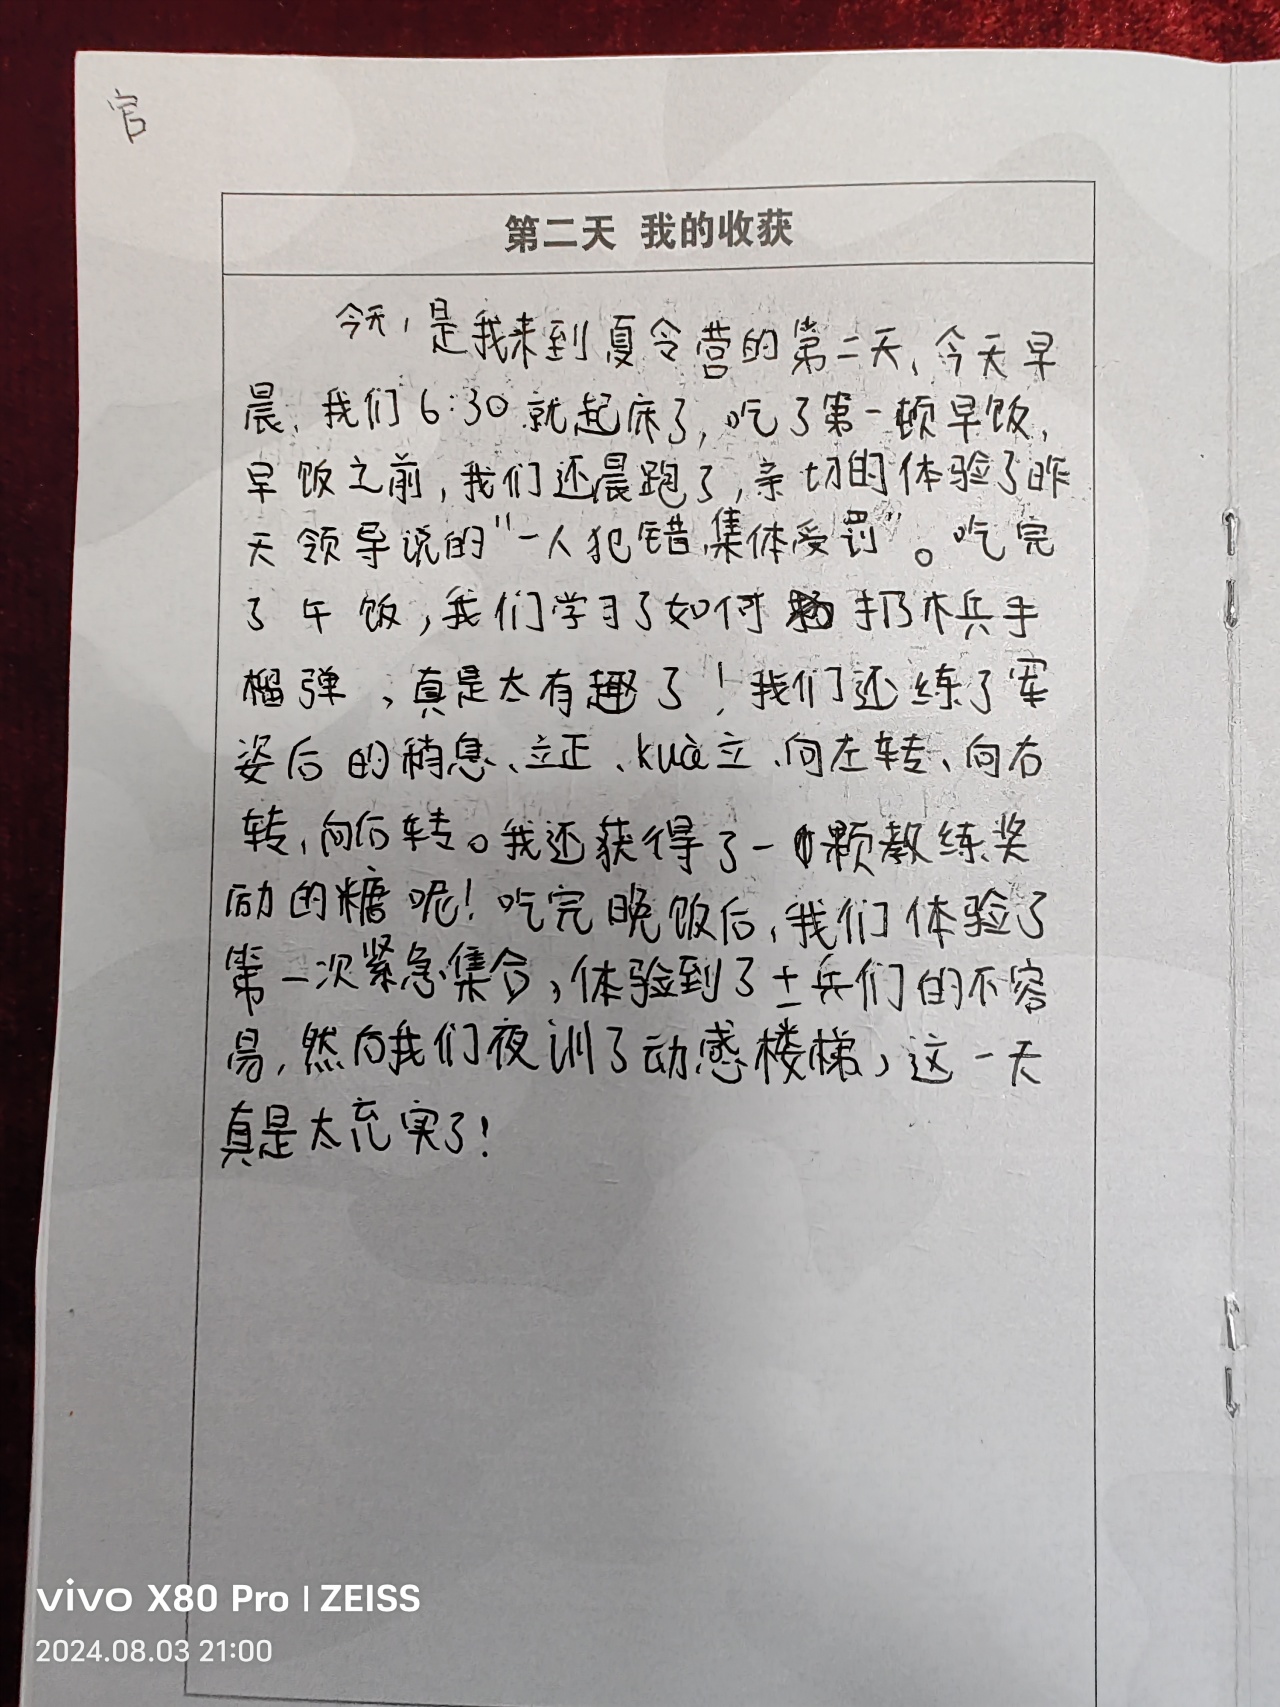 官
第二天 我的收获
今天,是我来到夏令营的第二天,今天早
晨,我们6:30就起床了,吃了第一顿早饭,
早饭之前,我们还晨跑了,亲切的体验了昨
天领导说的"一人犯错,集体受罚"。吃完
了午饭,我们学习了如何 扔木柄手
榴弹,真是太有趣了!我们还练了军
姿后的稍息、立正、kuà立、向左转、向右
转,向后转。我还获得了一颗教练奖
励的糖呢!吃完晚饭后,我们体验了
第一次紧急集合,体验到了士兵们的不容
易,然后我们夜训了动感楼梯,这一天
真是太充实了!
vivo X80 Pro | ZEISS
2024.08.03 21:00